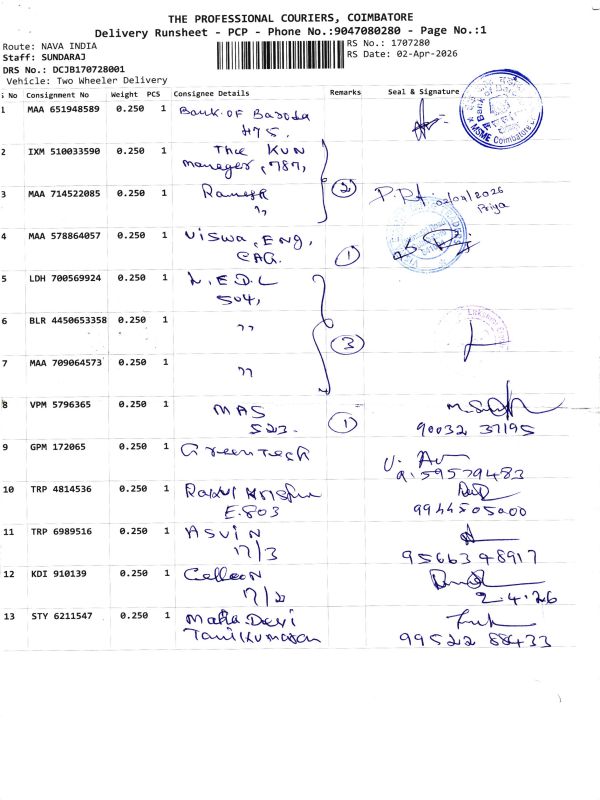 THE PROFESSIONAL COURIERS, COIMBATORE
Delivery Runsheet - PCP - Phone No.:9047080280 - Page No.:1
Route: NAVA INDIA
RS No.: 1707280
Staff: SUNDARAJ
RS Date: 02-Apr-2026
DRS No.: DCJB170728001
Vehicle: Two Wheeler Delivery
S No Consignment No Weight PCS Consignee Details Remarks Seal & Signature
1 MAA 651948589 0.250 1 Bank of Baroda
475.
Bank of Baroda
MSME Coimbatore
2 IXM 510033590 0.250 1 The KUN
manager, 787,
3 MAA 714522085 0.250 1 Ramesh 2
,, 02/04/2026
Priya
4 MAA 578864057 0.250 1 Viswa, Eng,
CAG. 1
5 LDH 700569924 0.250 1 L.E.D.L
504,
6 BLR 4450653358 0.250 1 ,, 3
7 MAA 709064573 0.250 1 ,,
8 VPM 5796365 0.250 1 MAS
523. 1 90032 37195
9 GPM 172065 0.250 1 Greentech
9.59579483
10 TRP 4814536 0.250 1
E.803 9944505000
11 TRP 6989516 0.250 1 ASVIN
17/3 9566348917
12 KDI 910139 0.250 1
17/2 2.4.26
13 STY 6211547 0.250 1 Maha Devi
Tamilkumaran 99522 88433